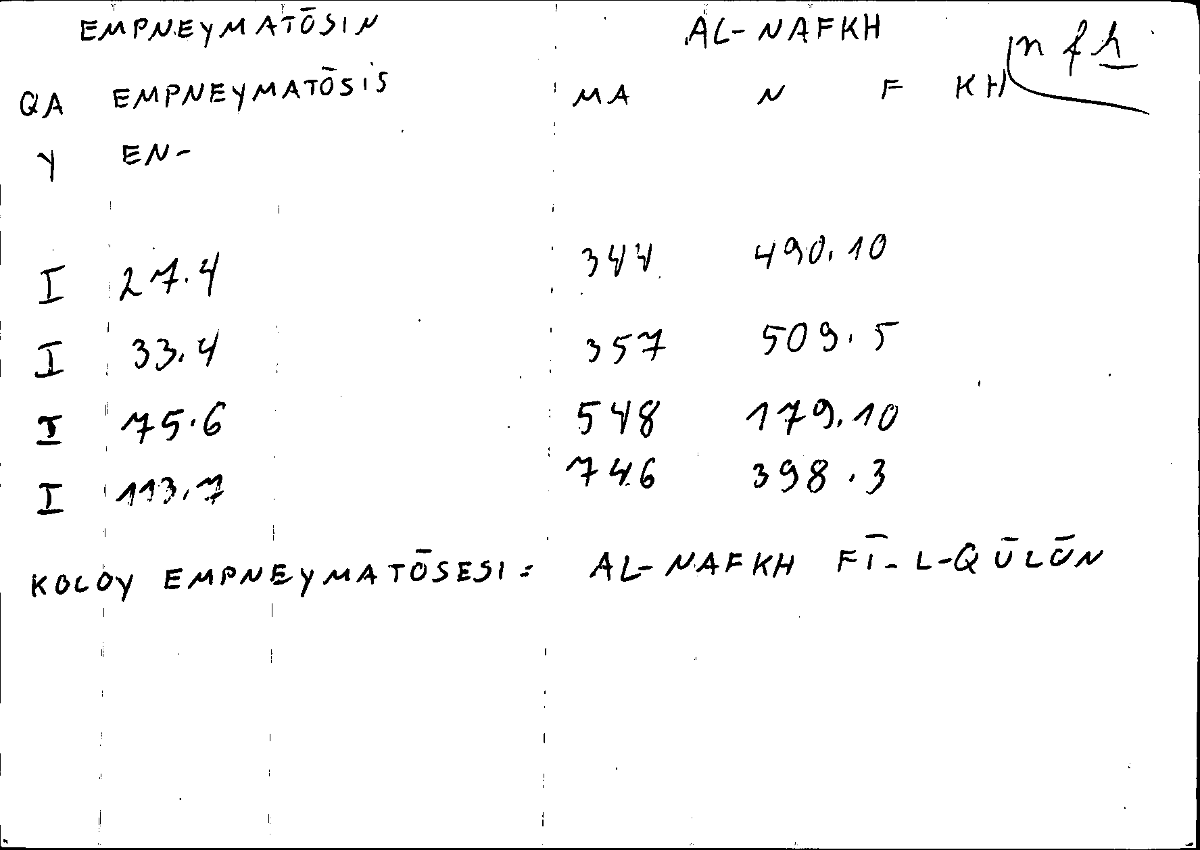 EMPNEYMATŌSIN AL-NAFKH
QA EMPNEYMATŌSIS MA N F KH nfḫ
Y EN-
I 27.4 344 490.10
I 33.4 357 509.5
I 75.6 548 179.10
I 113.7 746 398.3
KOLOY EMPNEYMATŌSESI: AL-NAFKH FĪ-L-QŪLŪN